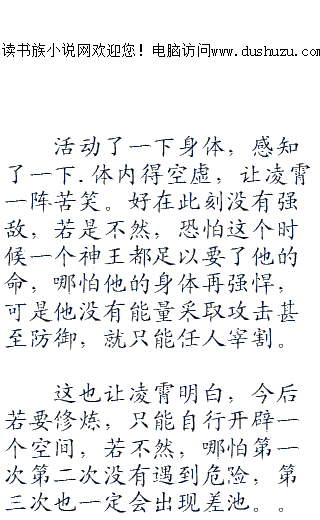 读书族小说网欢迎您！电脑访问www.dushuzu.com
活动了一下身体，感知
了一下.体内得空虚，让凌霄
一阵苦笑。好在此刻没有强
敌，若是不然，恐怕这个时
候一个神王都足以要了他的
命，哪怕他的身体再强悍，
可是他没有能量采取攻击甚
至防御，就只能任人宰割。
这也让凌霄明白，今后
若要修炼，只能自行开辟一
个空间，若不然，哪怕第一
次第二次没有遇到危险，第
三次也一定会出现差池。。